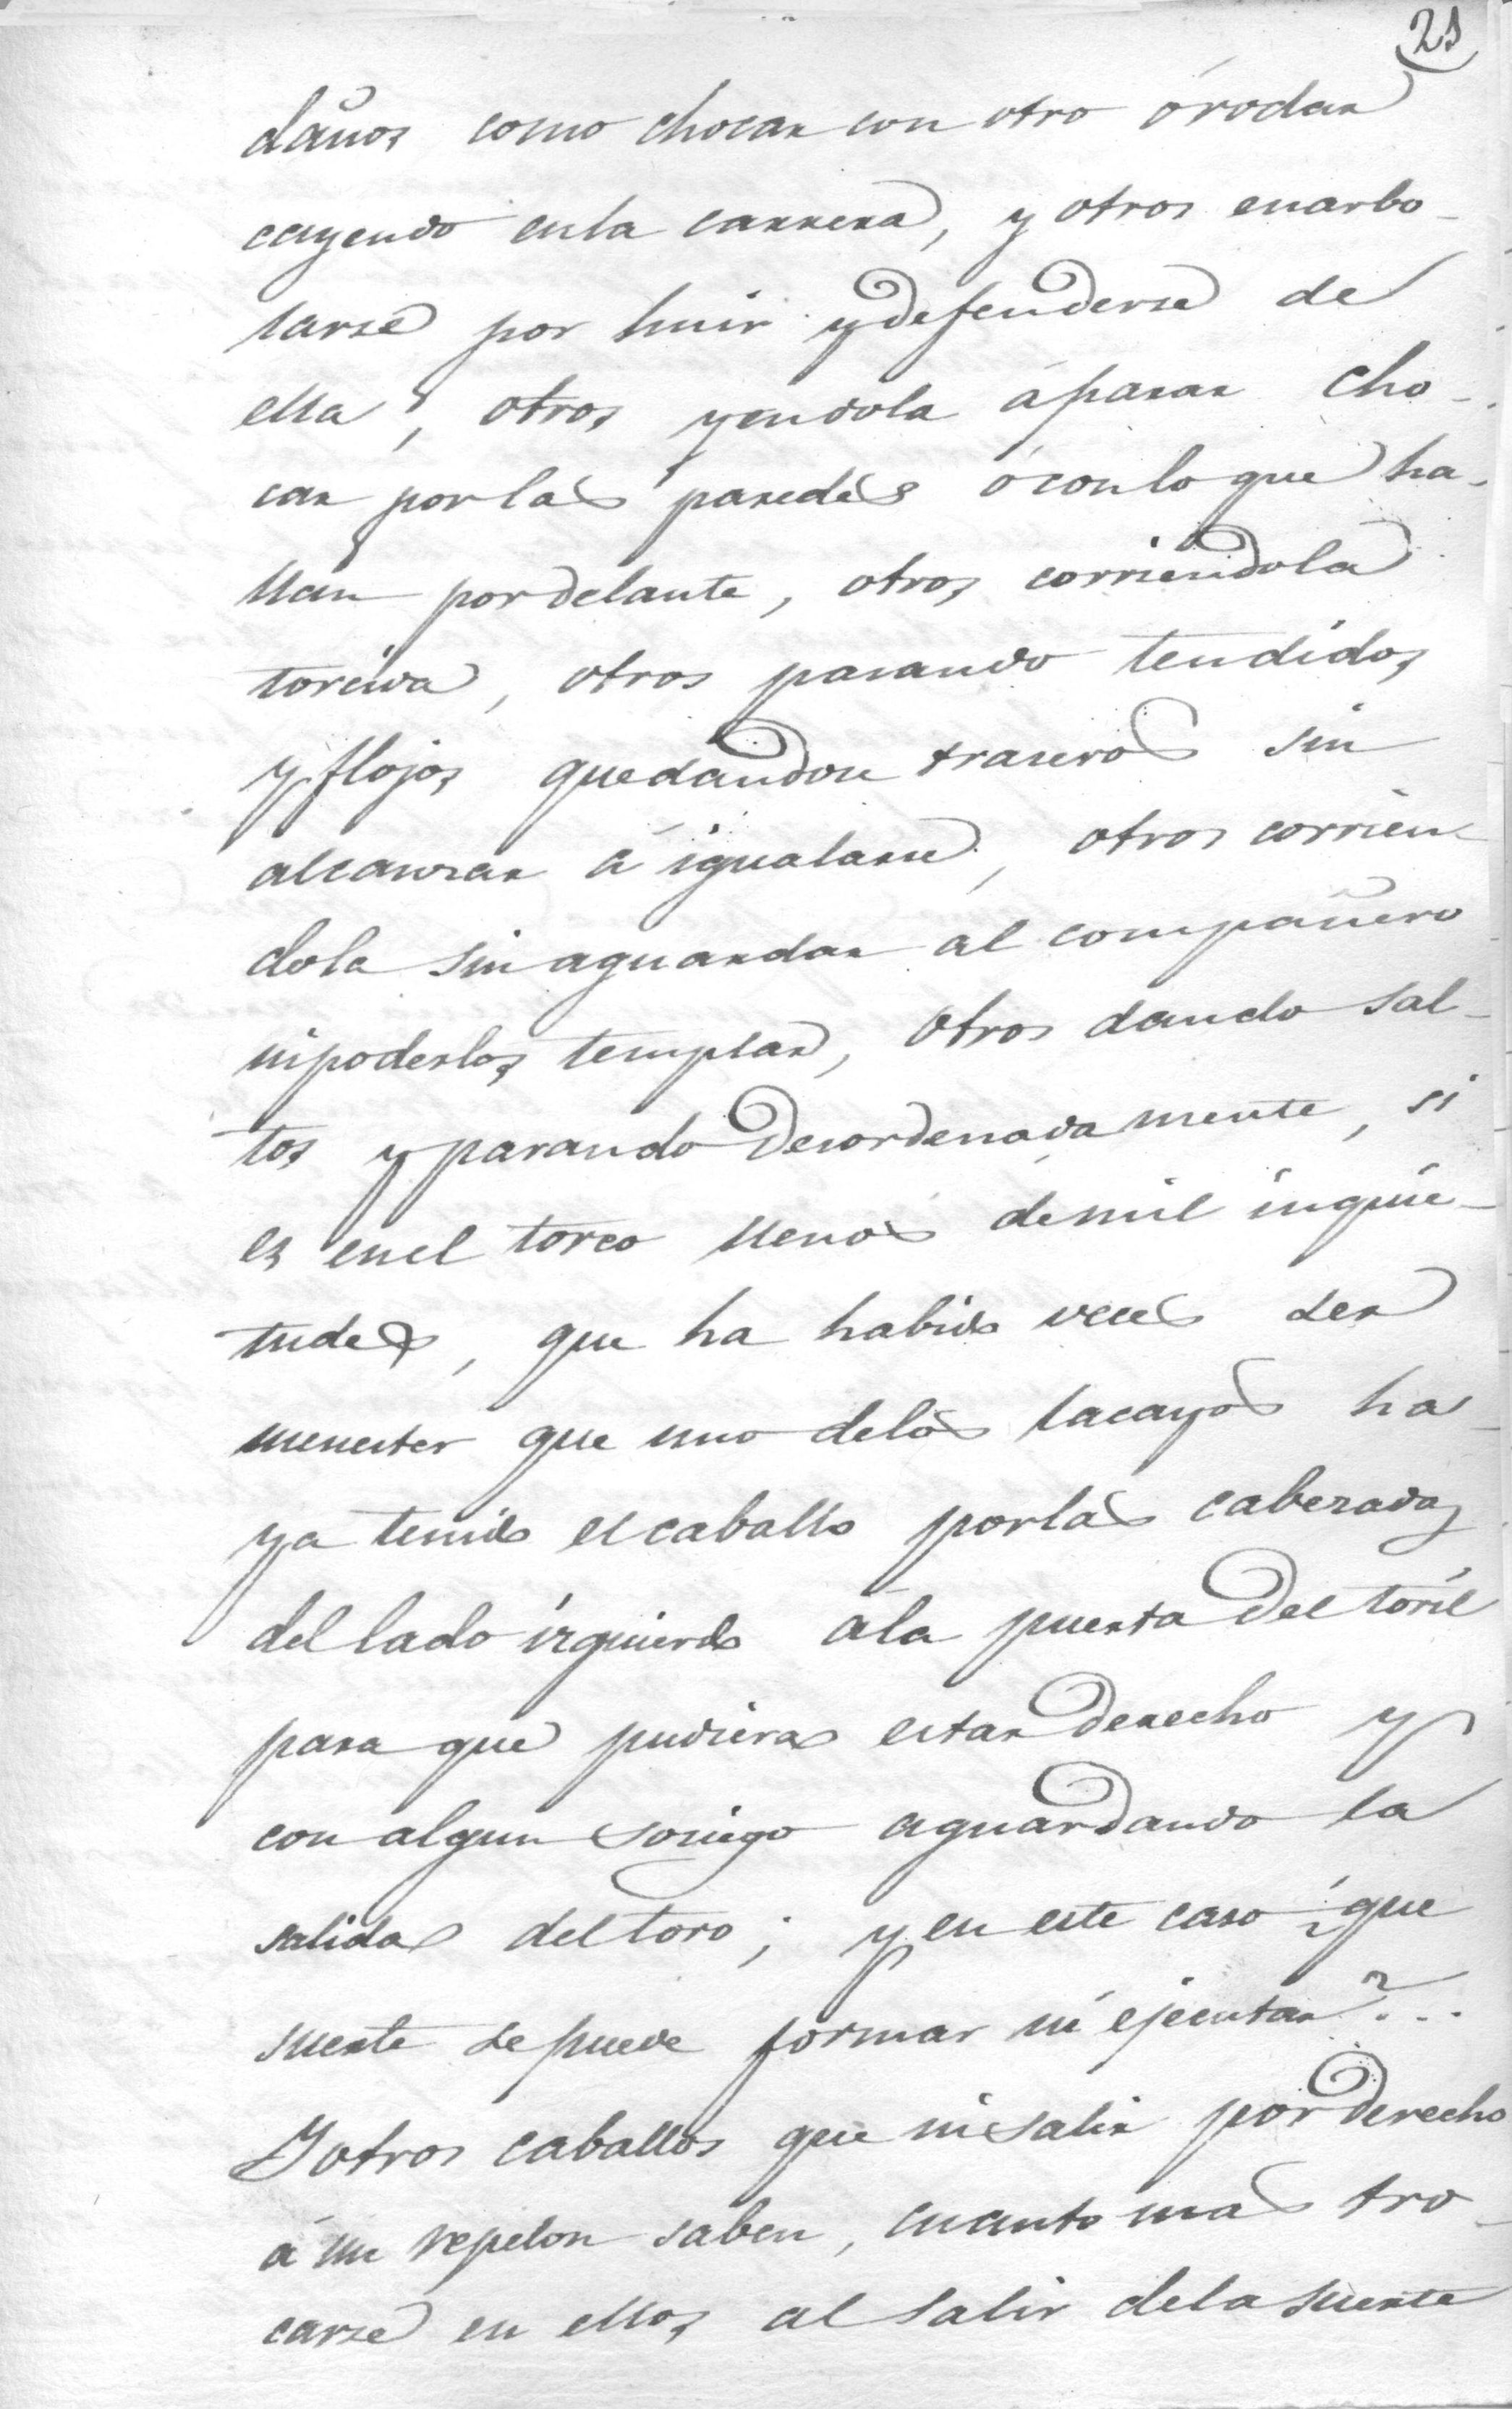 21
daños como chocar con otro órodar
cayendo enla carrera, y otros enarbo-
larse por huir ydefenderse de
ella, otros yendola áparar cho-
car por las paredes óconlo que ha-
llan pordelante, otros corriendola
torcida, otros parando tendidos
y flojos quedandose traseros sin
alcanzar á igualarse, otros corrien-
dola sin aguardar al compañero
nipoderlos templar, otros dando sal-
tos y parando desordenadamente, si
es enel toreo llenos demil inquie-
tudes, que ha habido veces ser
menester que uno delos lacayos ha-
ya tenido elcaballo porlas cabezadas
del lado izquierdo ála puerta del toril
para que pudiera estar derecho y
con algun sosiego aguardando la
salida deltoro; y en este caso ¿que
suerte sepuede formar ni ejecutar?...
Y otros caballos que nisalir por derecho
á un repelon saben, cuanto mas tro-
carse en ellos al salir dela suerte